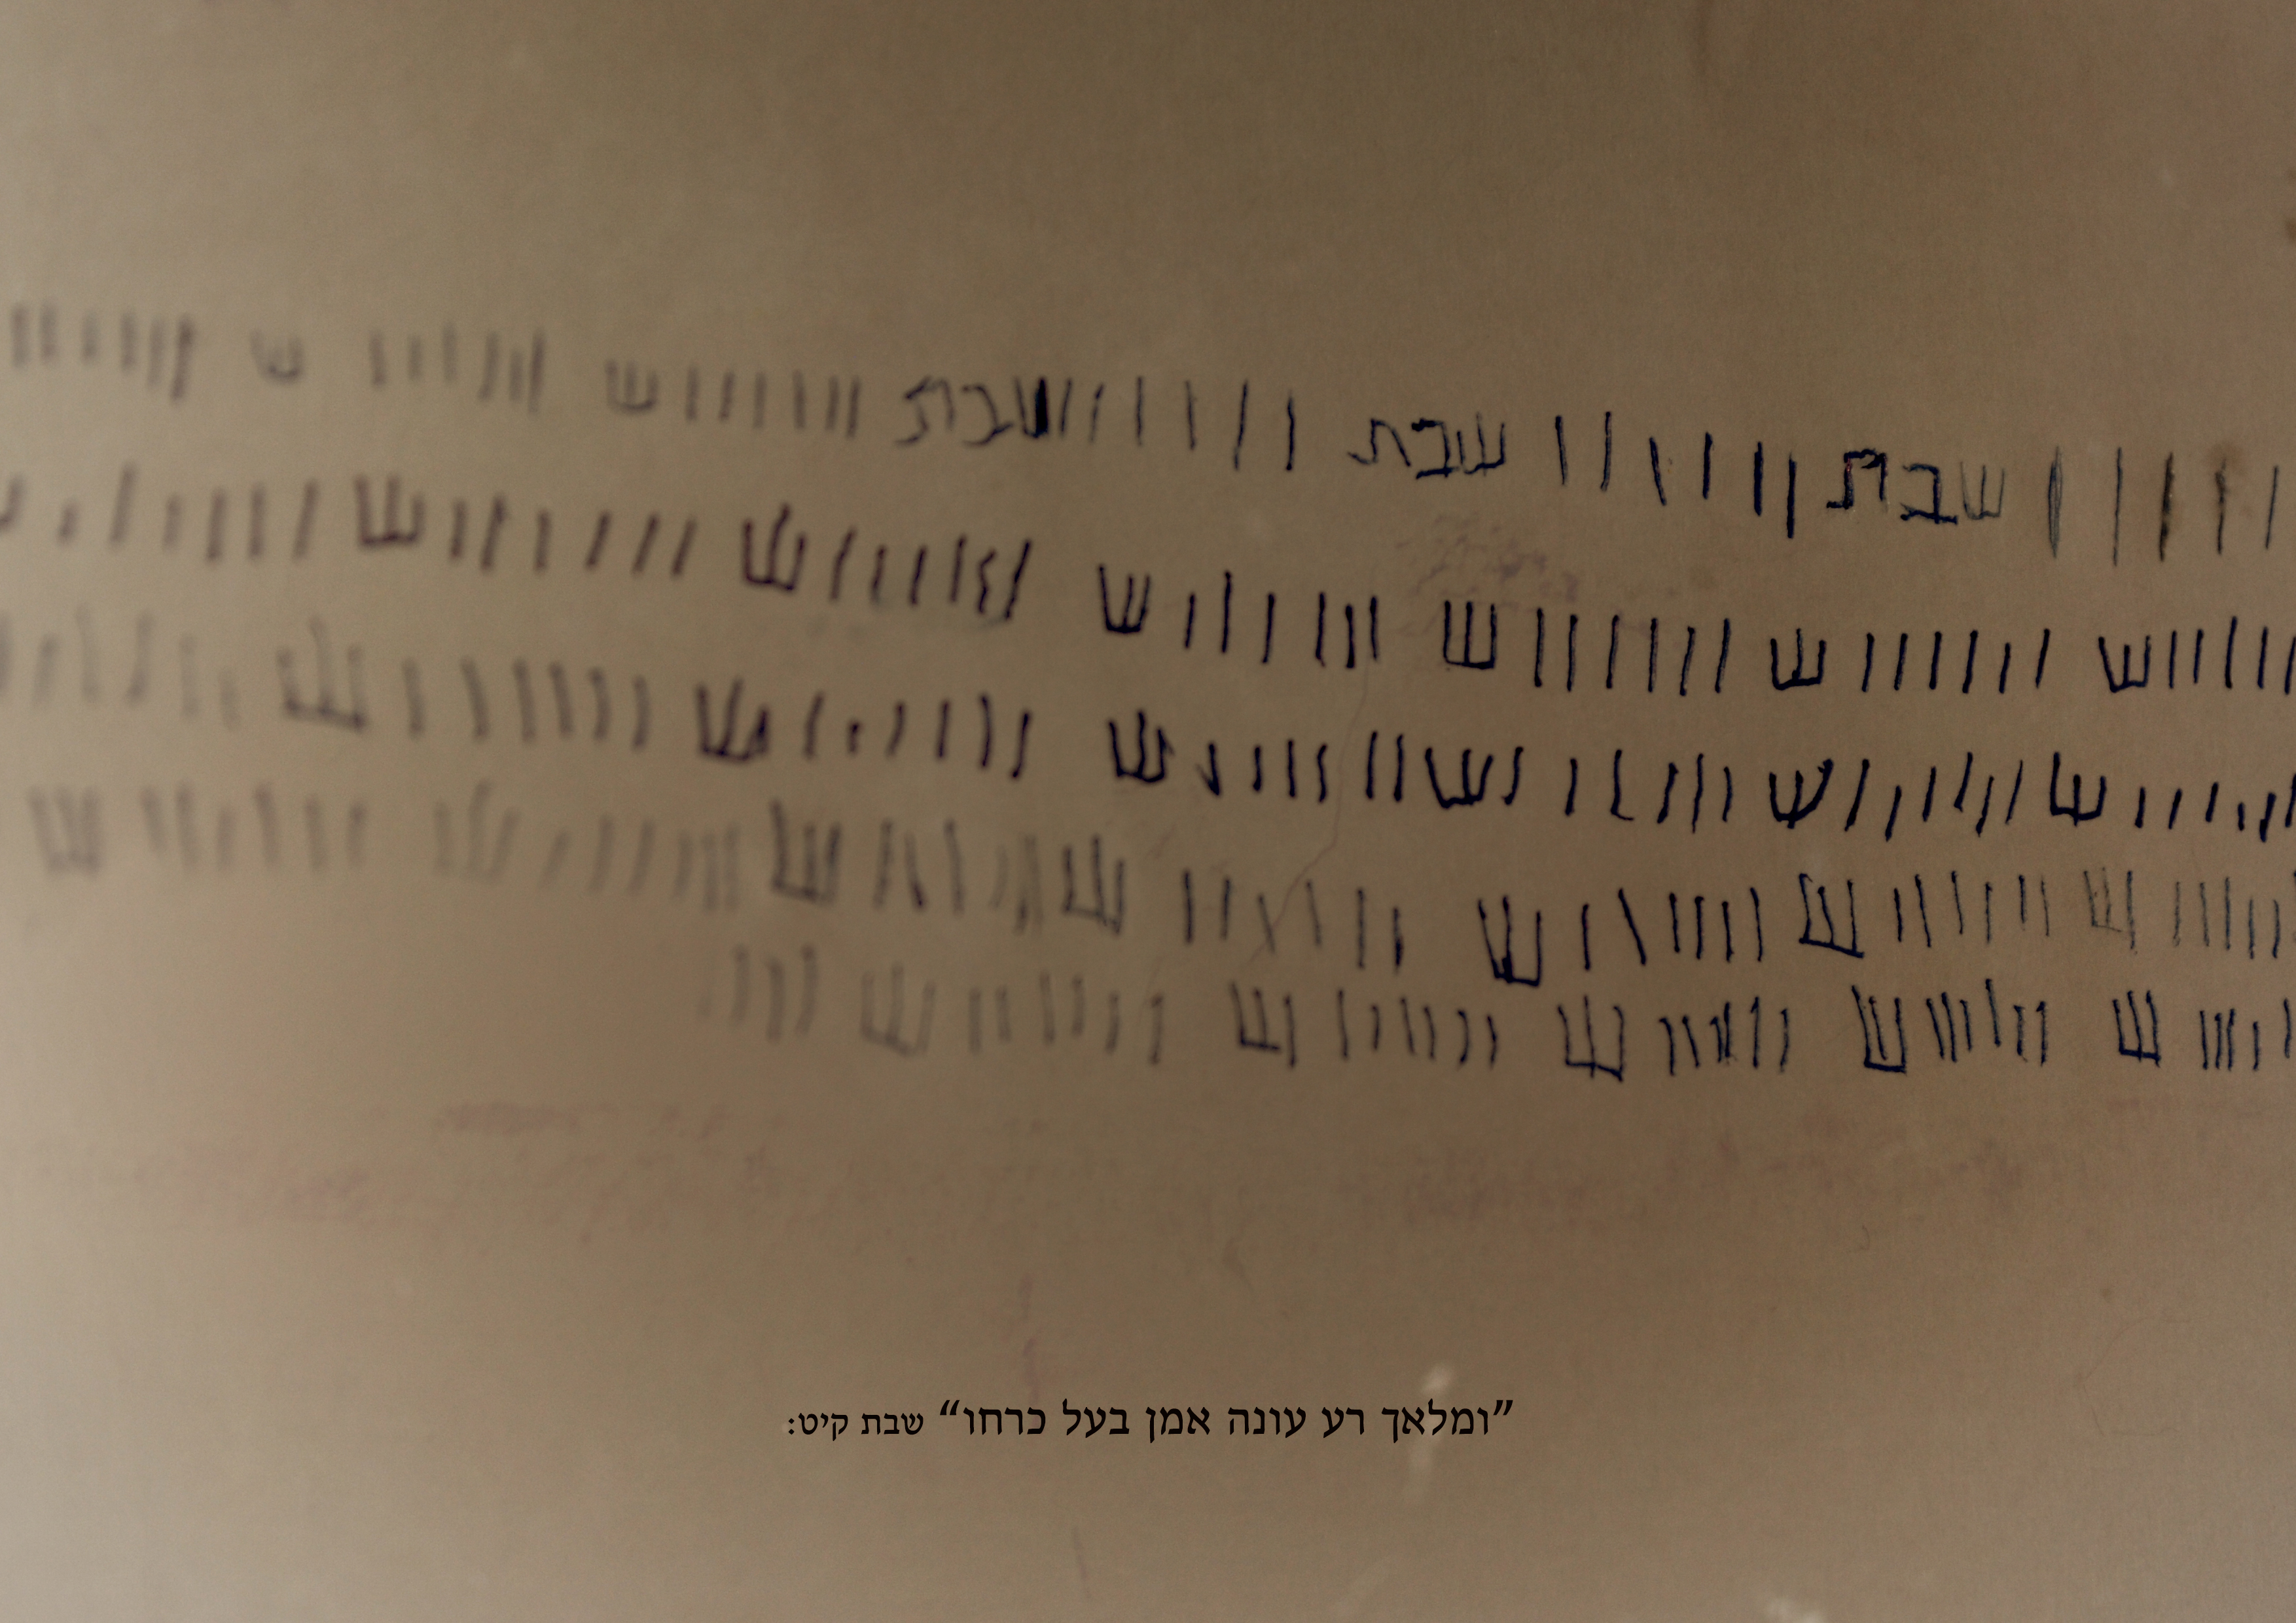 שבת שבת שבת ש ש
ש ש ש ש ש ש
ש ש ש ש ש ש
ש ש ש ש ש ש ש
ש ש ש ש ש
”ומלאך רע עונה אמן בעל כרחו“ שבת קיט: